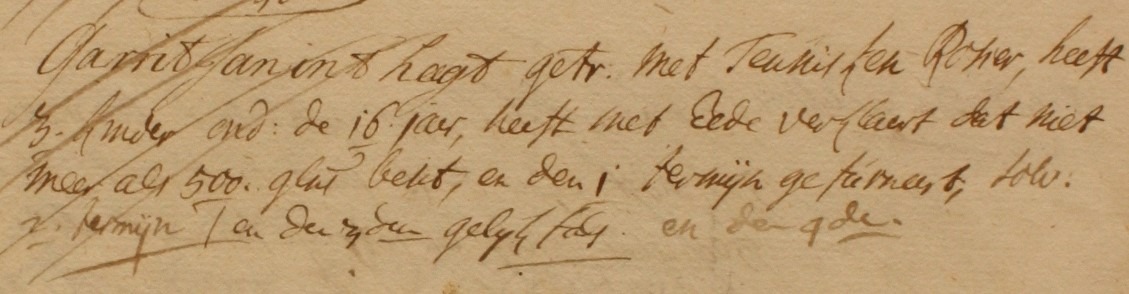 Garrit Jan int hagt getr. met Teunisken Rosier, heeft
3. kinder ond: de 16 jaer, heeft met Eede verklaert dat niet
meer als 500. gls besit, en den 1 termijn gefurneert, solv:
2. termijn en den 3den gelyk en den 4de.